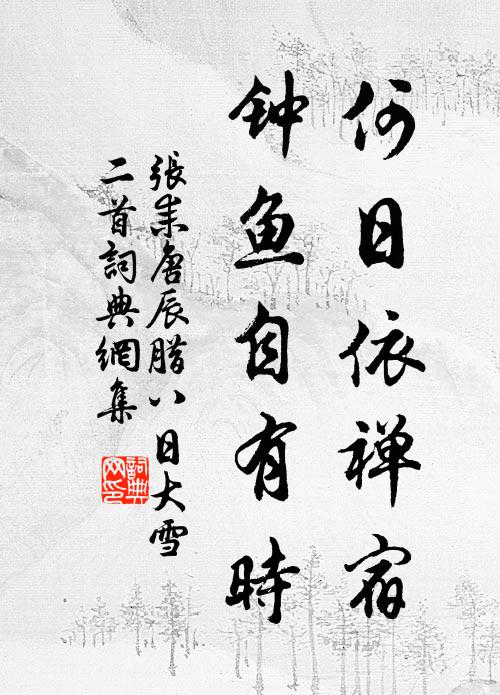 何日依禅宿
钟鱼自有時
張耒唐辰腊八日大雪
二首詞典網集
詞典
网印